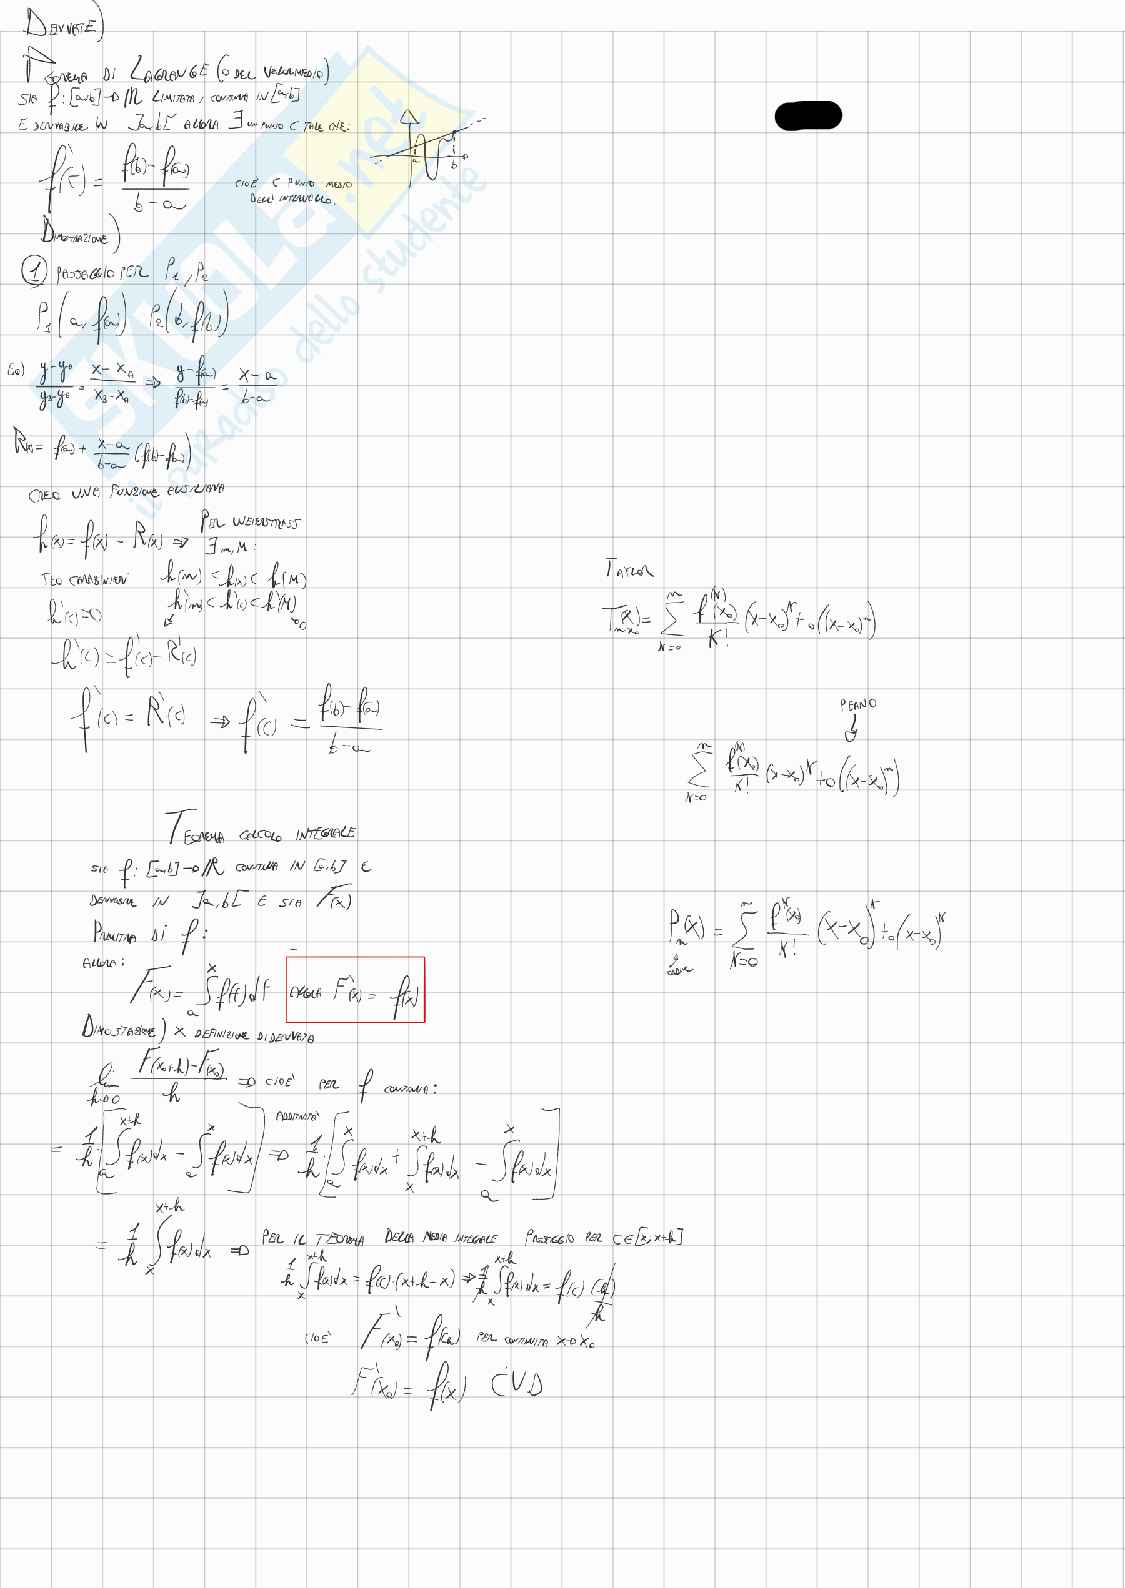 DERIVATE)
TEOREMA DI LAGRANGE (O DEL VALOR MEDIO)
SIA f: [a,b] → ℝ LIMITATA, CONTINUA IN [a,b]
E DERIVABILE IN ]a,b[ ALLORA ∃ UN PUNTO C TALE CHE:
f'(c) = (f(b) - f(a)) / (b - a)
CIOÈ C PUNTO MEDIO
DELL'INTERVALLO.
a b
DIMOSTRAZIONE)
① PASSAGGIO PER P1, P2
P1(a, f(a)) P2(b, f(b))
(y - y0)/(yB - y0) = (x - xA)/(xB - xA) ⇒ (y - f(a))/(f(b) - f(a)) = (x - a)/(b - a)
R(x) = f(a) + (x - a)/(b - a) (f(b) - f(a))
CREO UNA FUNZIONE AUSILIARIA
h(x) = f(x) - R(x) ⇒ PER WEIERSTRASS
∃ m, M:
h(m) < h(x) < h(M)
h'(c) = 0
h'(m) < h'(c) < h'(M)
h'(c) = f'(c) - R'(c)
f'(c) = R'(c) ⇒ f'(c) = (f(b) - f(a)) / (b - a)
TAYLOR
T(x) = Σ K=0 n f^(K)(x0)/K! (x - x0)^K + o((x - x0)^n)
PEANO
Σ K=0 n f^(K)(x0)/K! (x - x0)^K + o((x - x0)^n)
Pn(x) = Σ K=0 n f^K(x0)/K! (x - x0)^K + o(x - x0)^K
TEOREMA CALCOLO INTEGRALE
SIA f: [a,b] → ℝ CONTINUA IN [a,b] E
DERIVABILE IN ]a,b[ E SIA F(x)
PRIMITIVA DI f:
ALLORA:
F(x) = ∫ a x f(t) dt ALLORA F'(x) = f(x)
DIMOSTRAZIONE) x DEFINIZIONE DI DERIVATA
lim h→0 (F(x0+h) - F(x0)) / h ⇒ CIOÈ PER f CONTINUA:
= 1/h [∫ a x+h f(x)dx - ∫ a x f(x)dx] ADDITIVITÀ ⇒ 1/h [∫ a x f(x)dx + ∫ x x+h f(x)dx - ∫ a x f(x)dx]
= 1/h ∫ x x+h f(x)dx ⇒ PER IL TEOREMA DELLA MEDIA INTEGRALE PASSAGGIO PER C∈[x, x+h]
1/h ∫ x x+h f(x)dx = f(c)·(x+h-x) ⇒ 1/h ∫ x x+h f(x)dx = f(c) (h)/h
CIOÈ F'(x0) = f(x0) PER CONTINUITÀ x→x0
F'(x0) = f(x) CVD
SKUOLA.net
il paradiso dello studente